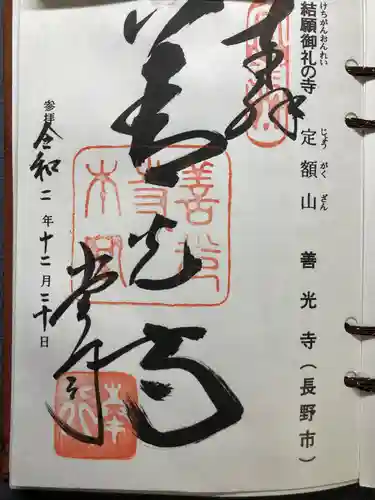 けちがんおんれい じょうがくざん
結願御礼の寺 定額山 善光寺(長野市)
奉拝
善光寺
参拝 令和二年十二月二十日